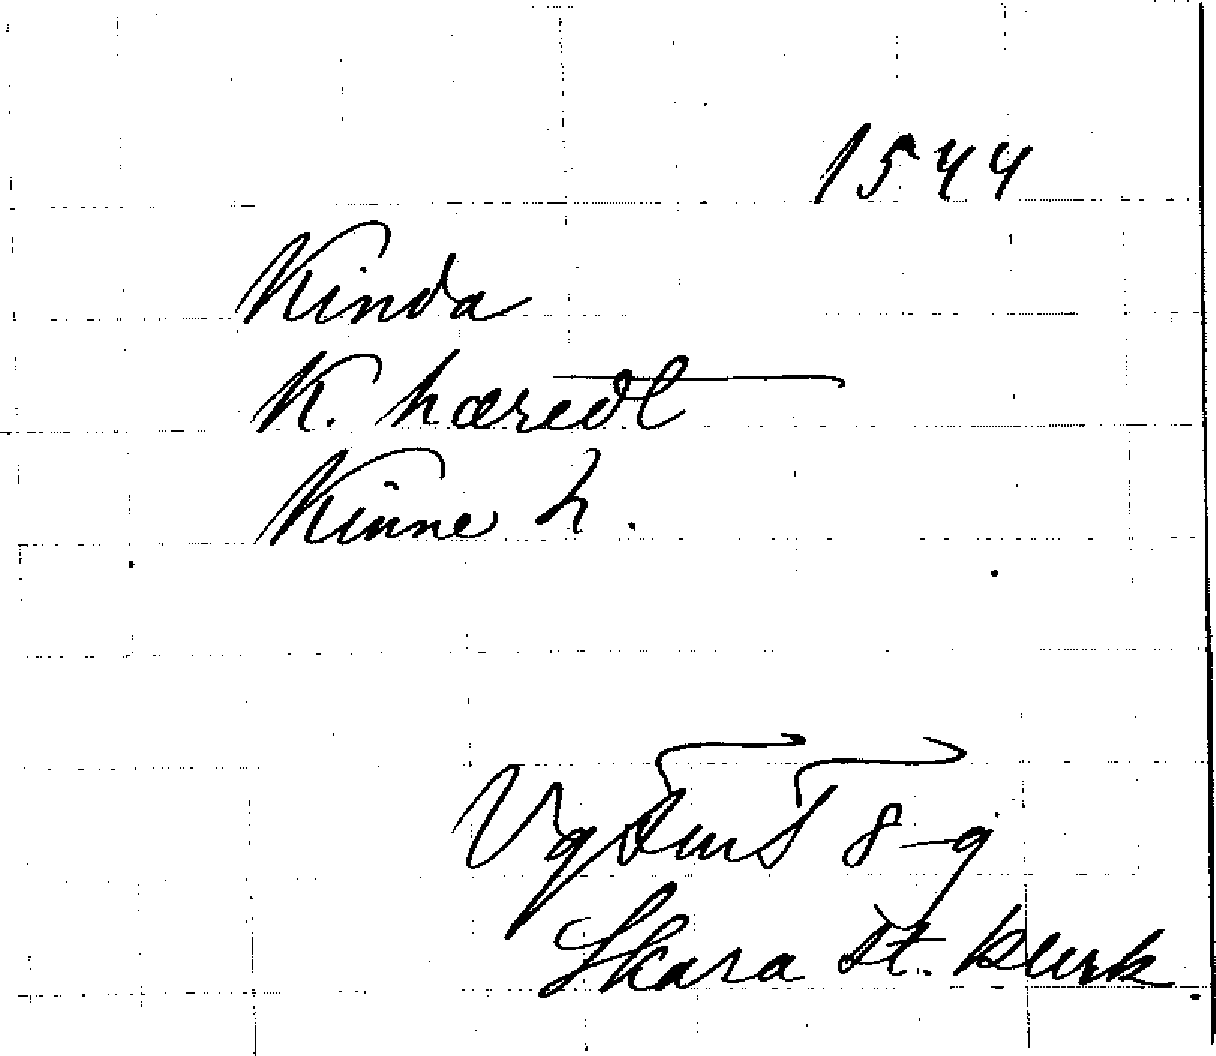 1544
Kinda
K. häredt
Kinne h.
VgFmT 8-9
Skara st. klerk